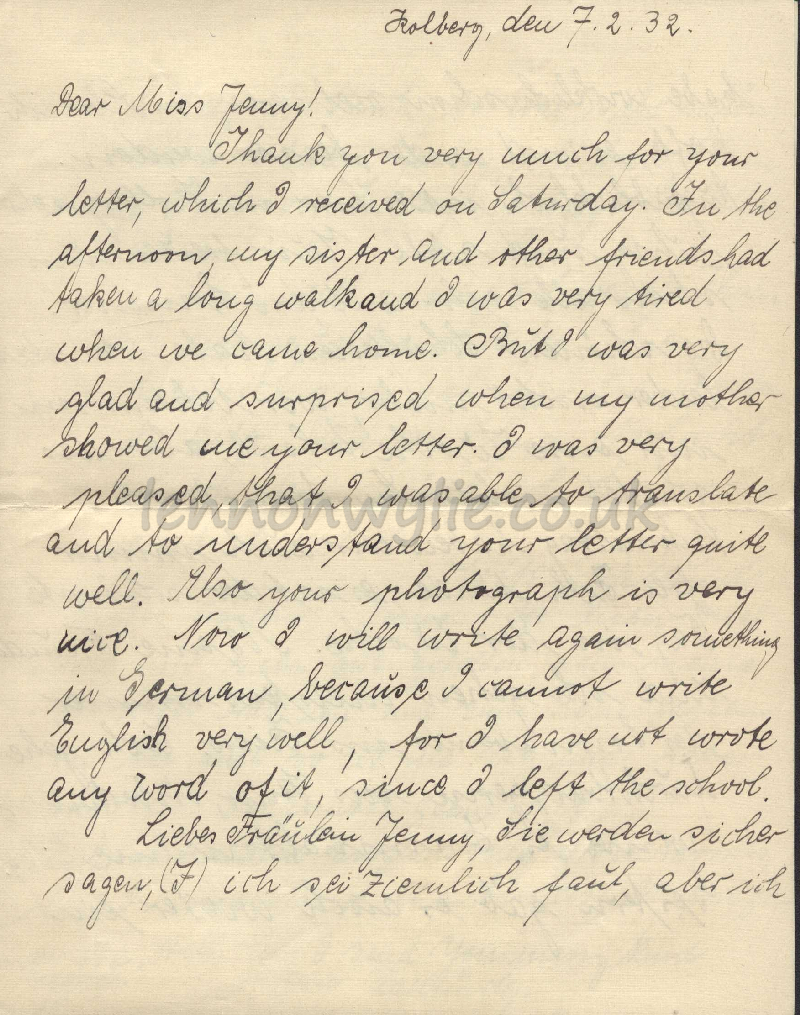 Kolberg, den 7.2.32.
Dear Miss Jenny!
Thank you very much for your
letter, which I received on Saturday. In the
afternoon, my sister and other friends had
taken a long walk and I was very tired
when we came home. But I was very
glad and surprised when my mother
showed me your letter. I was very
pleased, that I was able to translate
and to understand your letter quite
well. Also your photograph is very
nice. Now I will write again something
in German, because I cannot write
English very well, for I have not wrote
any word of it, since I left the school.
Liebes Fräulein Jenny, Sie werden sicher
sagen, (I) ich sei ziemlich faul, aber ich
lennonwylie.co.uk